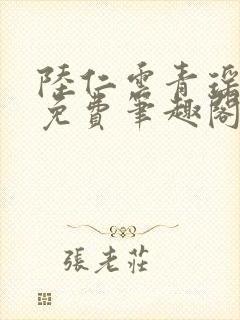 陸仁雲青瑤
免費筆趣閣
張老莊